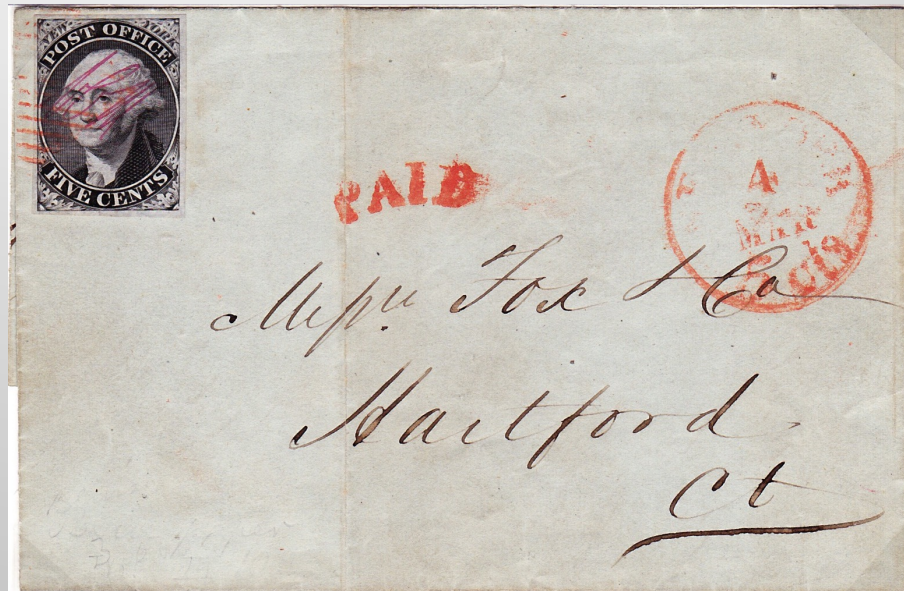 POST OFFICE
FIVE CENTS
PAID
4
MAR
5 cts
Messrs. Fox & Co
Hartford
Ct